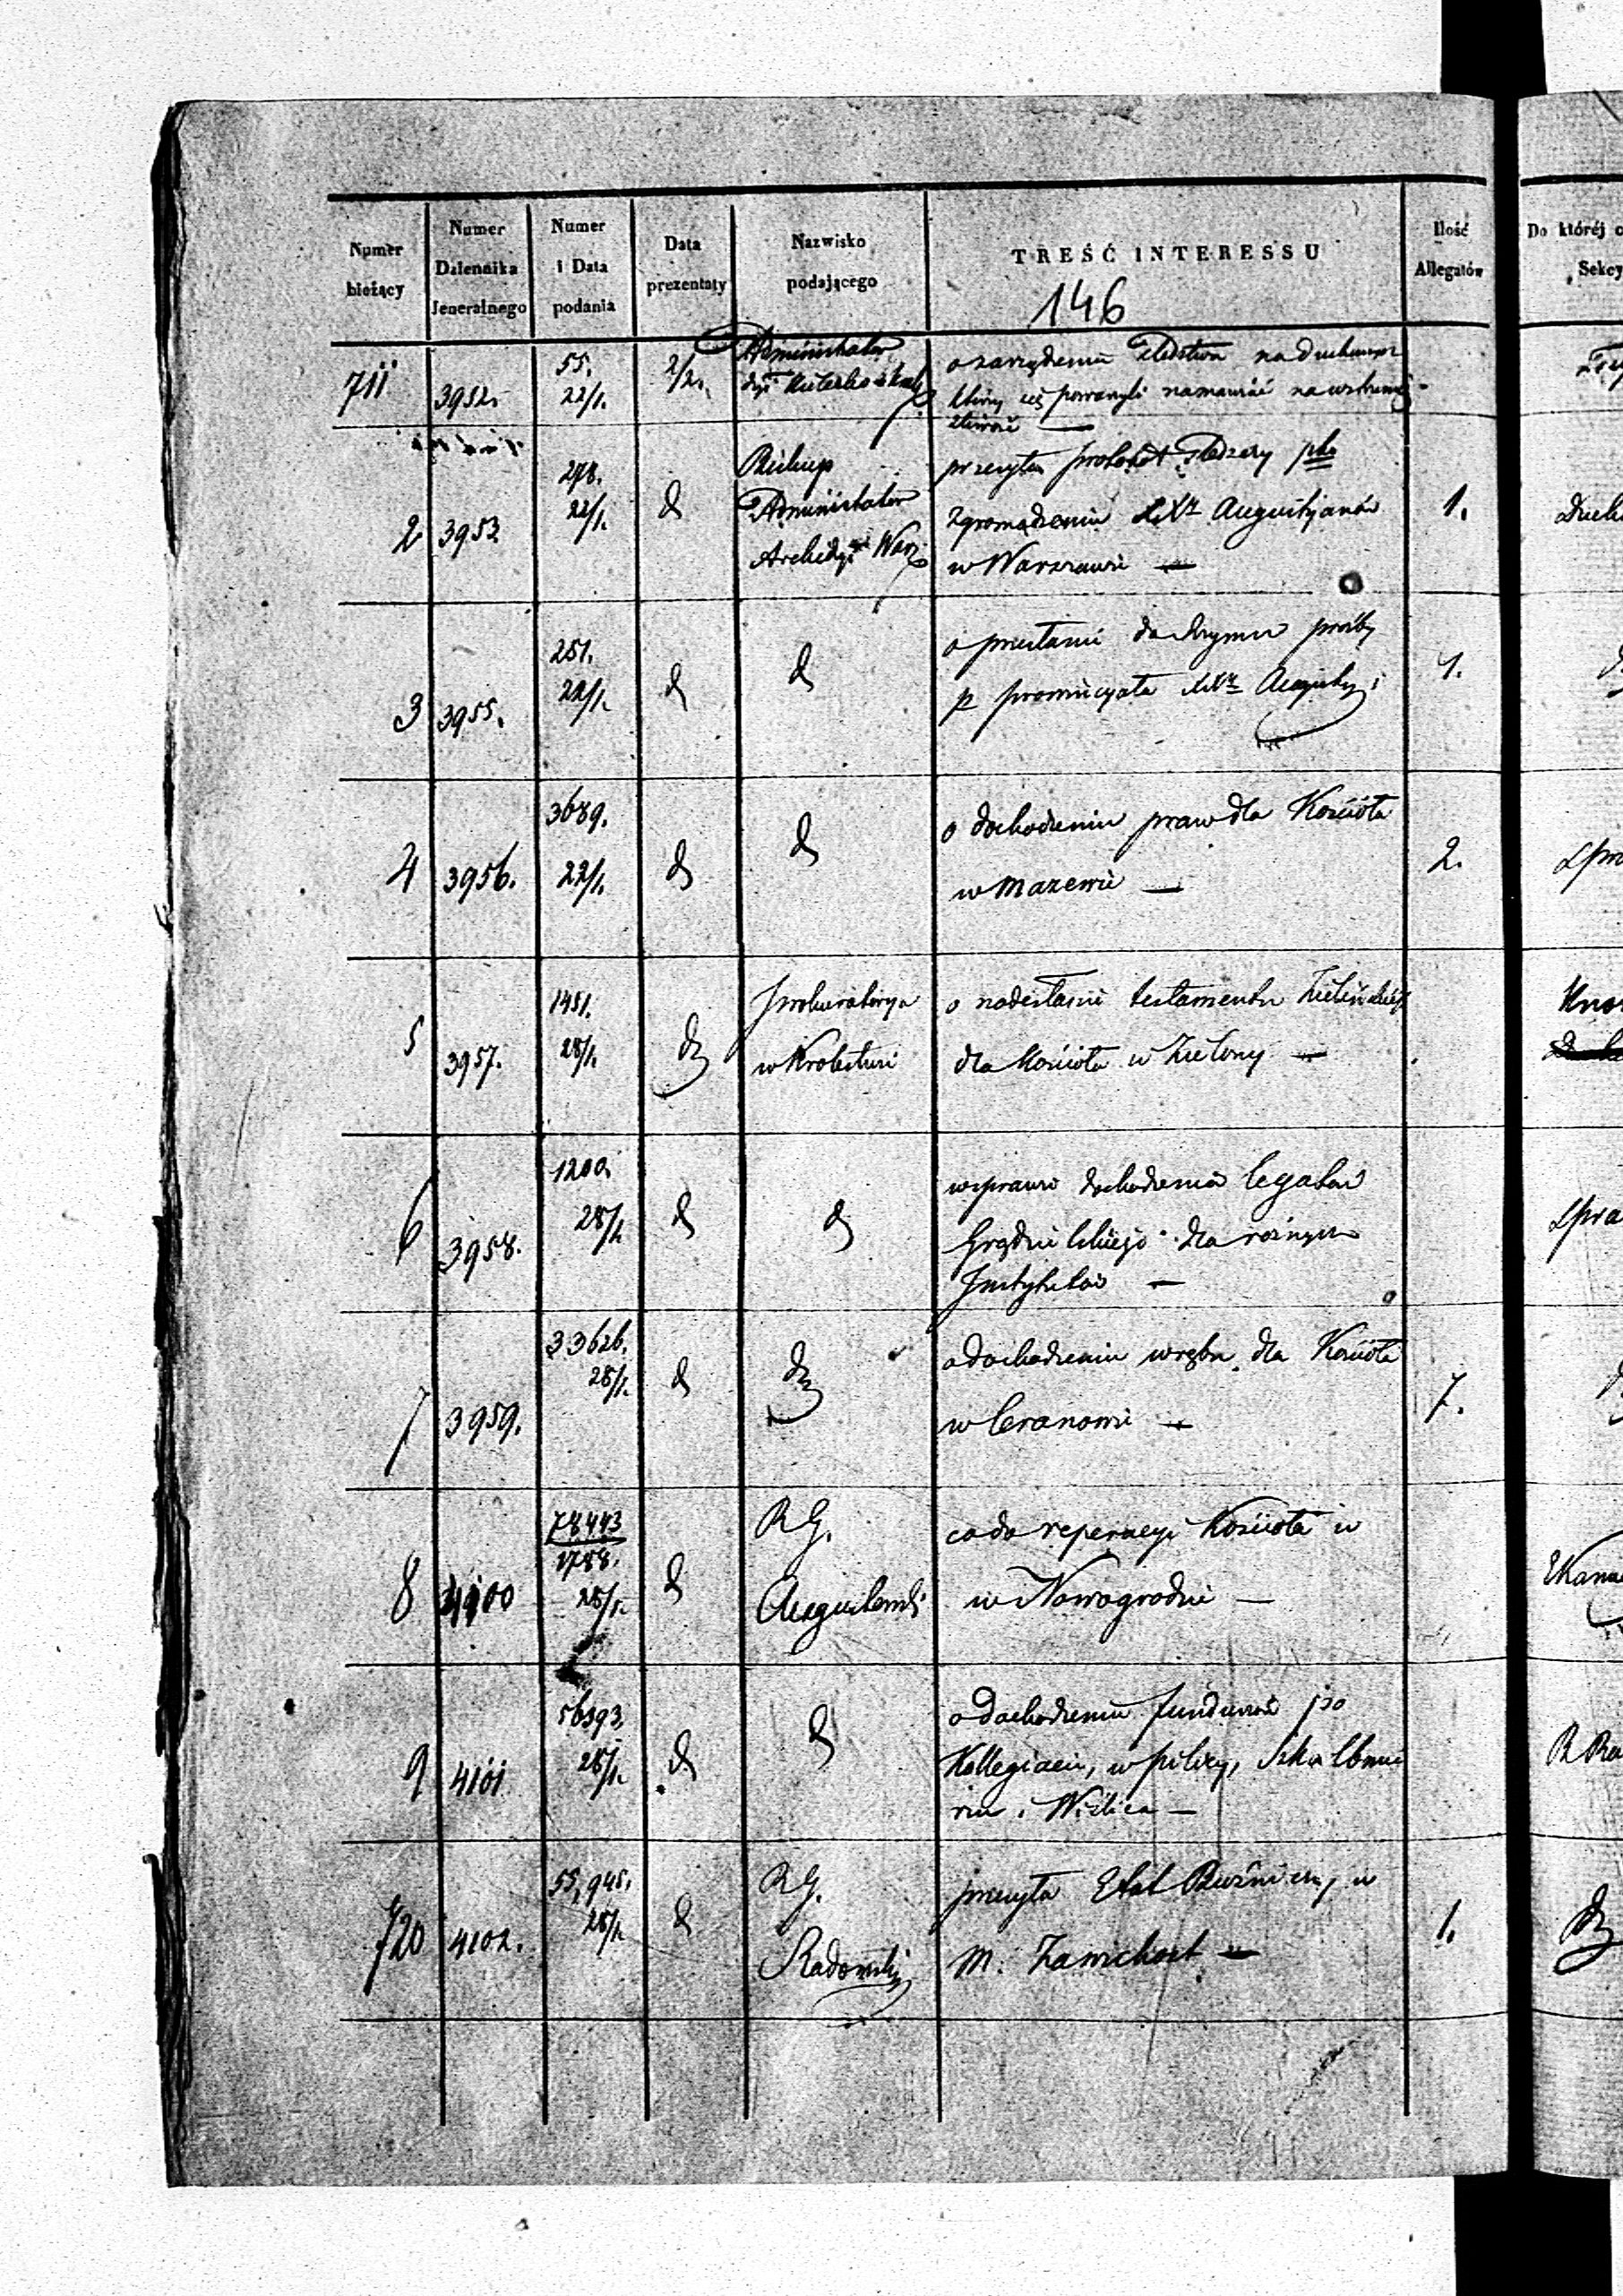 Numer bieżący
Numer Dziennika Jeneralnego
Numer i Data podania
Data prezentaty
Nazwisko podającego
TREŚĆ INTERESSU
Ilość Allegatów
Do któréj
146
711
3952.
55.
22/1.
2/2.
Administrator
o zarządzeniu Śledztwa na
którzy się poważyli namawiać na
2
3953
278.
22/1.
d
Biskup
Administrator
Archidyi Warz
przesyła protokół Śledczy pko
Zgromadzeniu XXr Augustjanów
w Warszawie —
1.
3
3955.
251.
22/1.
d
d
o przesłanie do Rzymu prośby
p prowincyała XXr Augusty
1.
4
3956.
3689.
22/1.
d
d
o dochodzeniu praw dla Kościoła
w Mazewie —
2.
5
3957.
1451.
28/1.
Prokuratorya
w Królestwie
o nadesłanie testamentu Zielińskiéj
dla Kościoła w Zielony —
6
3958.
1200.
28/1.
d
d
w sprawie dochodzenia legatów
dla różnych
Instytutów —
7
3959.
33626.
28/1.
d
o dochodzeniu wrębu dla Kościoła
w Ceranowie —
7.
8
4100
78443
1788.
28/1.
d
R G.
Augustowski
co do reperacyi Kościoła w
w Nowogrodzie —
9
4101
56393.
28/1.
d
d
o dochodzeniu funduszów po
Kollegiacie, w Pilicy, Skalbmie
rzu i Wiślica —
720
4102.
55,945.
28/1.
d
R G.
Radomski
przesyła Etat Bóżniczny w
M. Zawichost —
1.